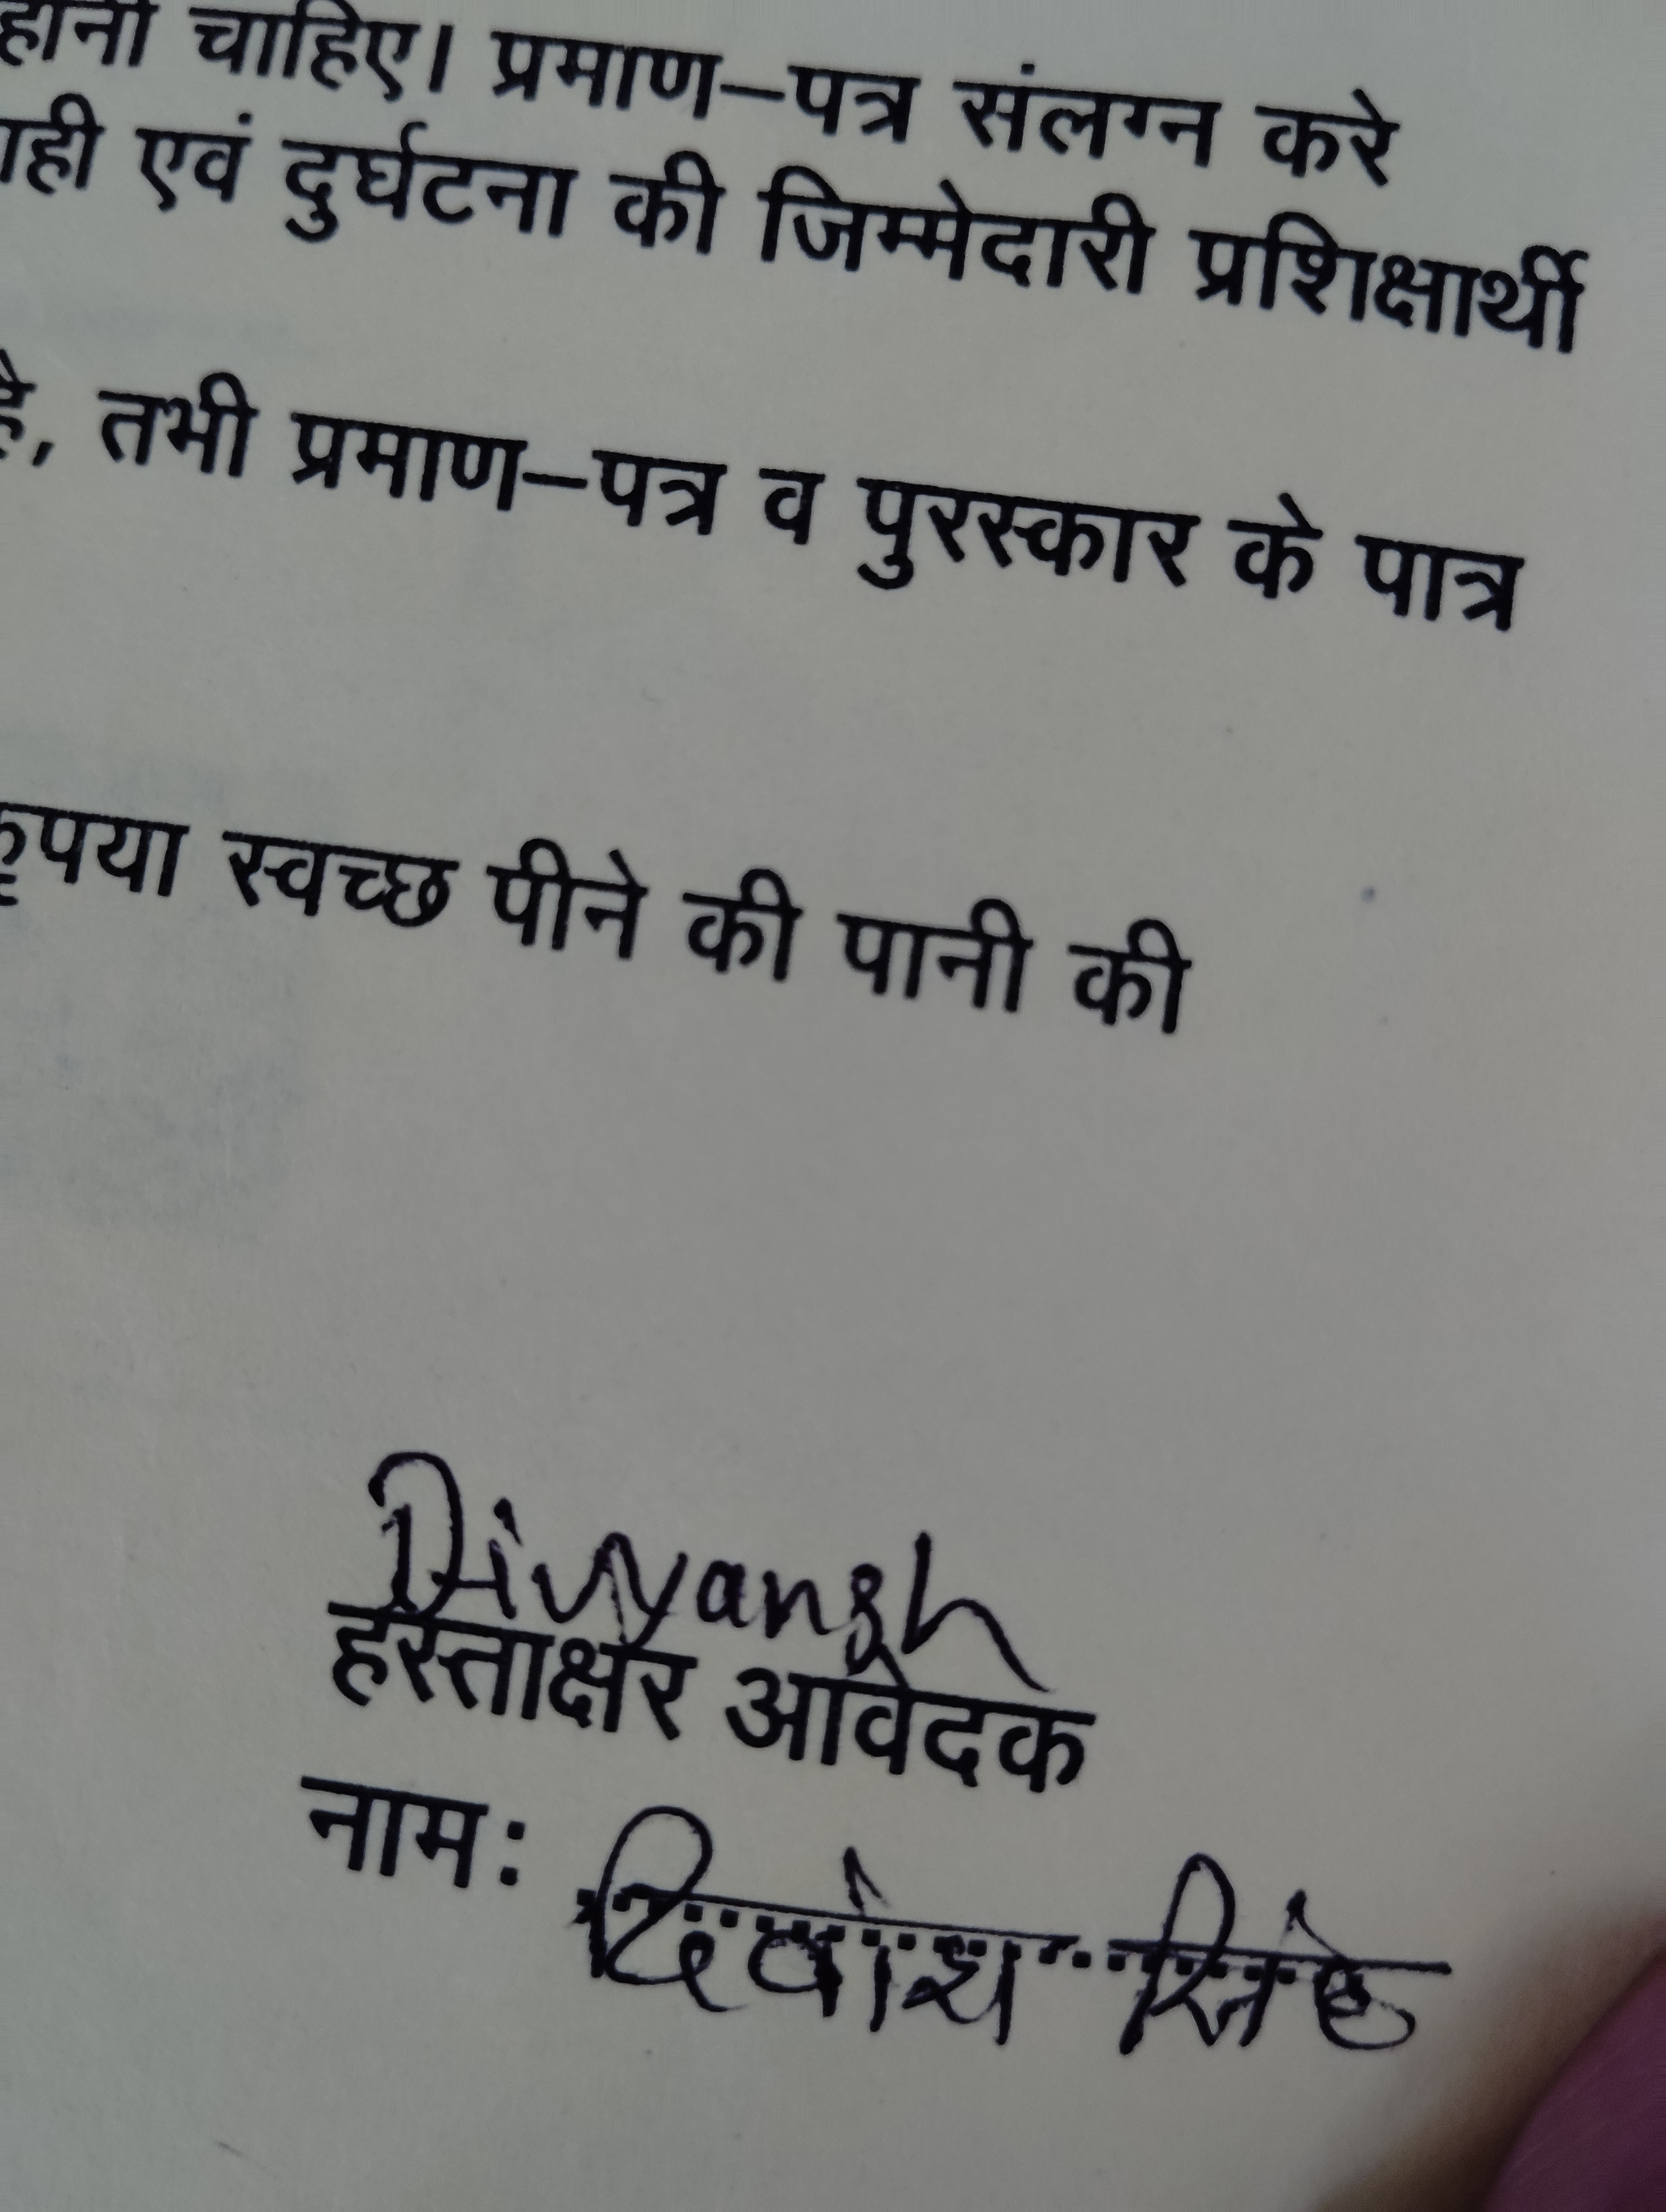 होना चाहिए। प्रमाण–पत्र संलग्न करे
एवं दुर्घटना की जिम्मेदारी प्रशिक्षार्थी
है, तभी प्रमाण–पत्र व पुरस्कार के पात्र
कृपया स्वच्छ पीने की पानी की
Divyansh
हस्ताक्षर आवेदक
नामः दिव्यांश सिंह